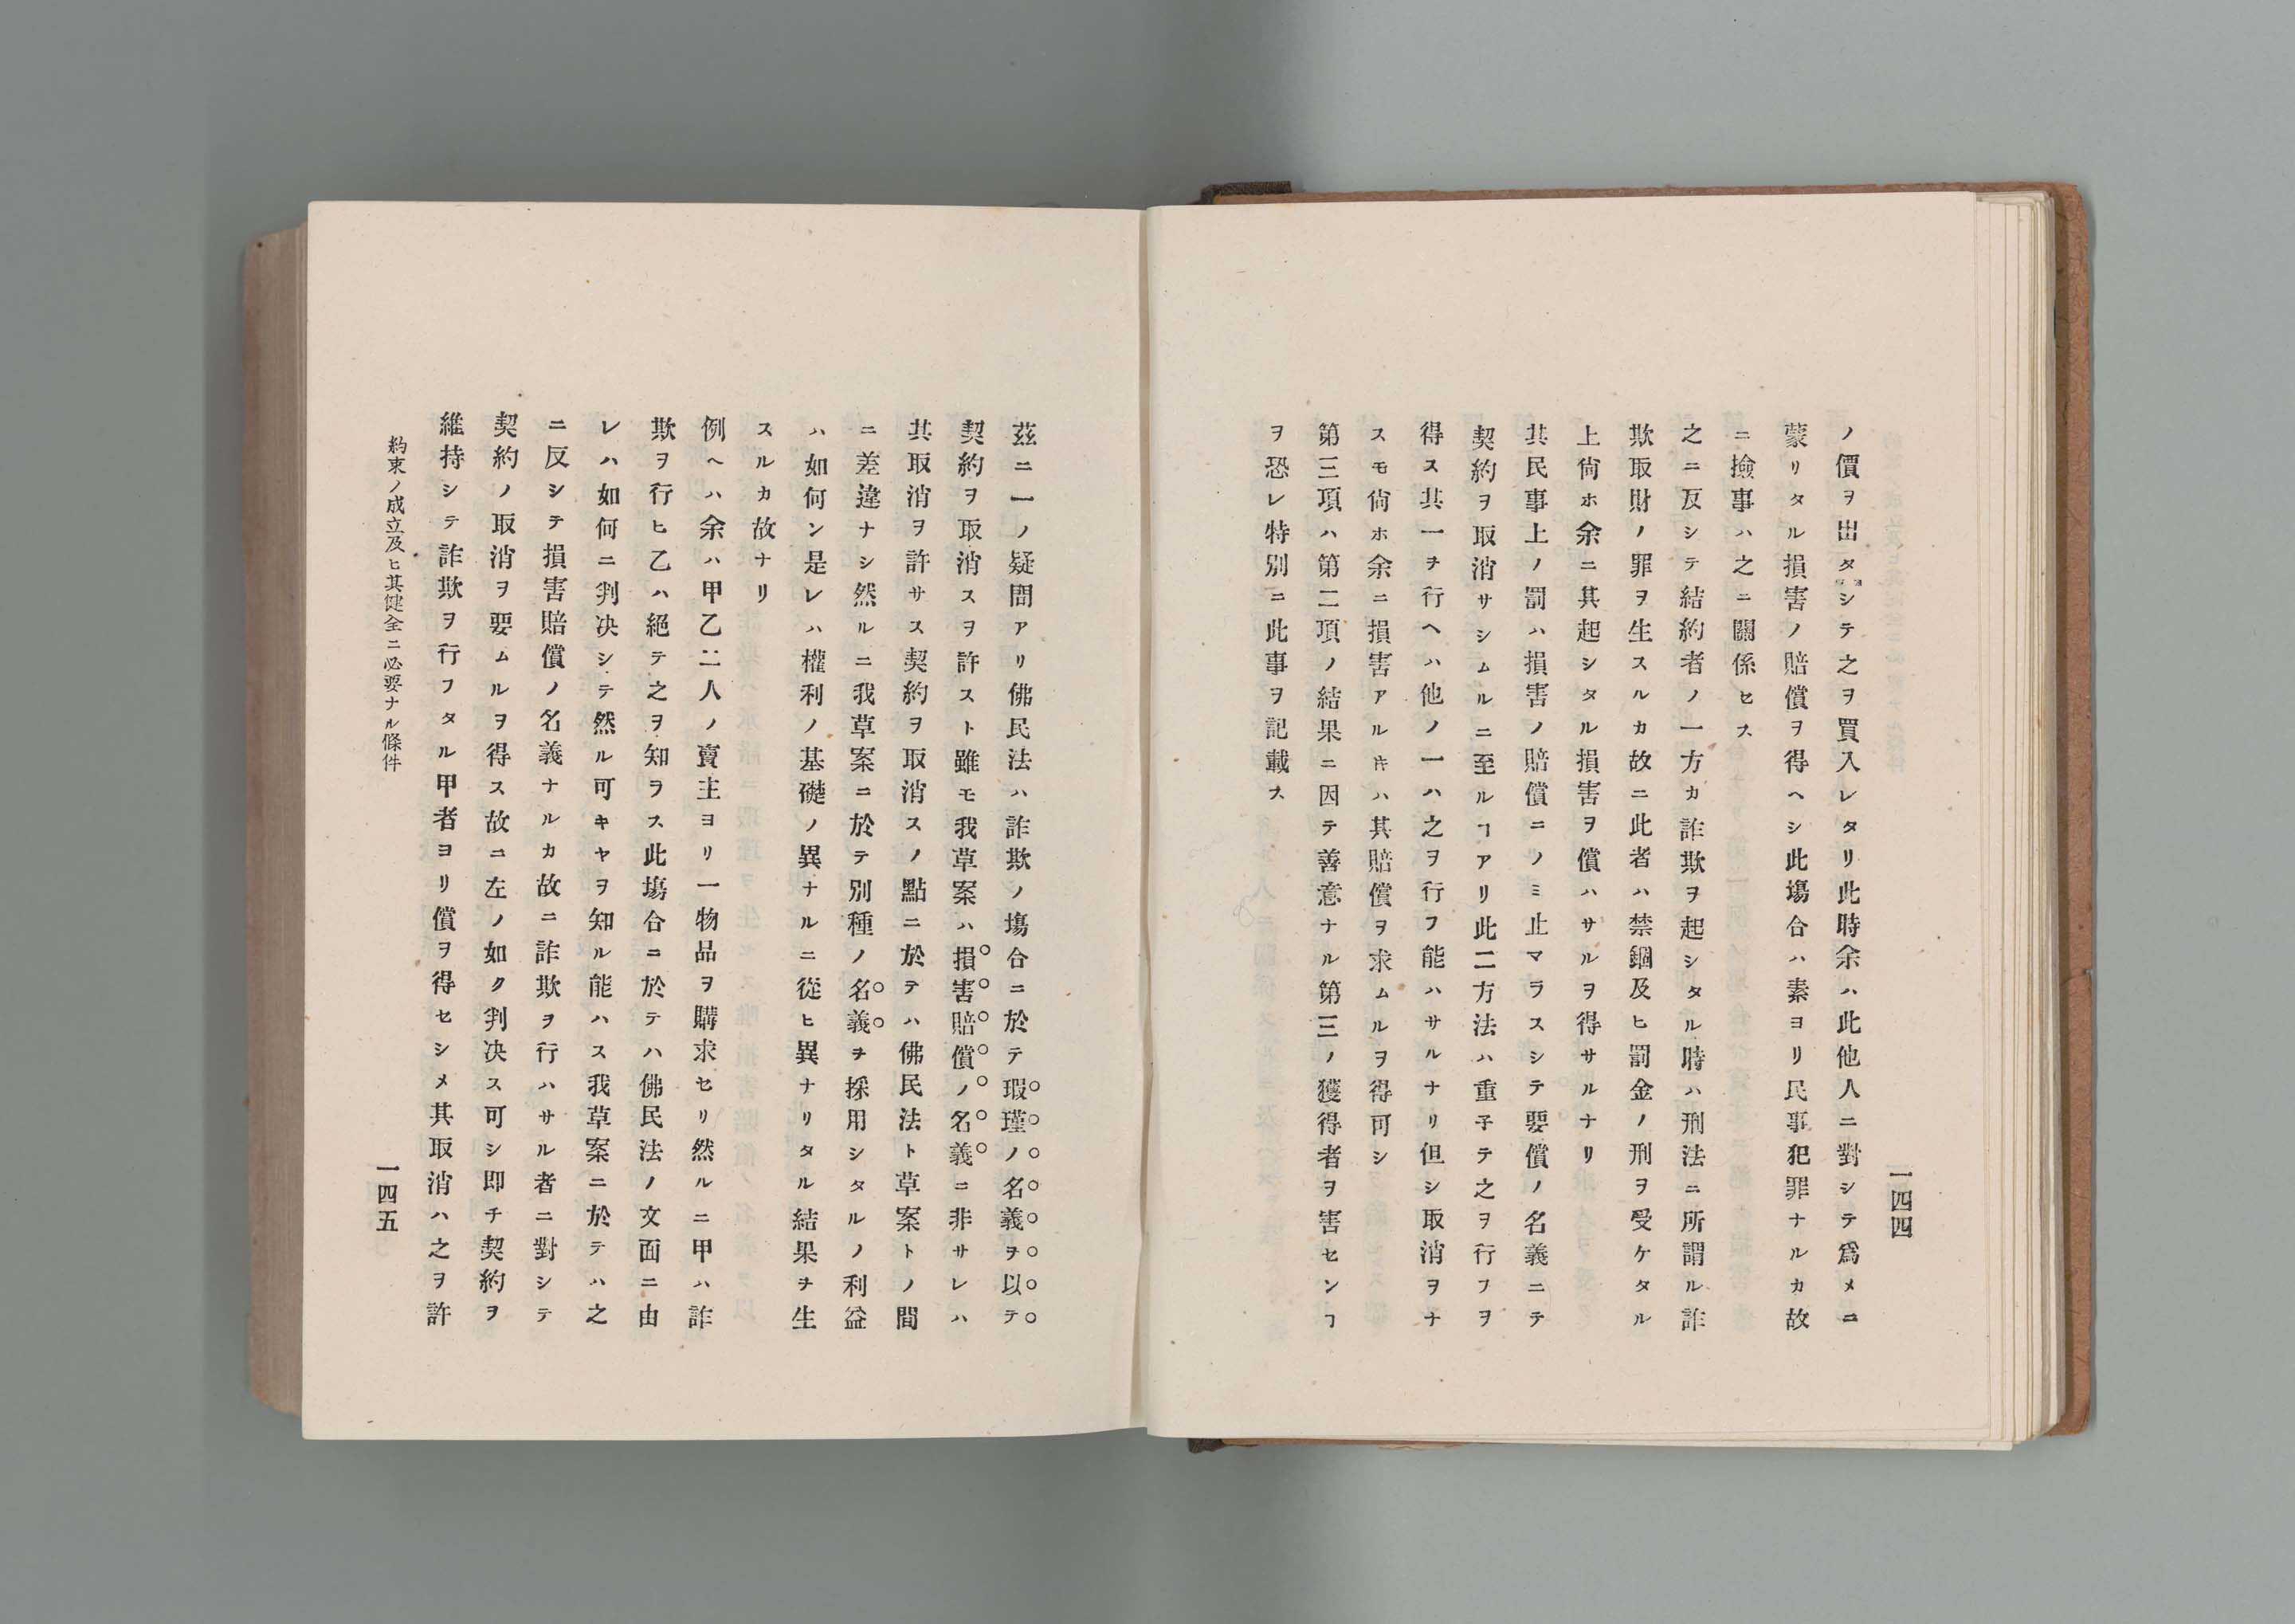 一四四
ノ價ヲ出タシテ之ヲ買入レタリ此時余ハ此他人ニ對シテ爲メニ
蒙リタル損害ノ賠償ヲ得ヘシ此塲合ハ素ヨリ民事犯罪ナルカ故
ニ撿事ハ之ニ關係セス
之ニ反シテ結約者ノ一方カ詐欺ヲ起シタル時ハ刑法ニ所謂ル詐
欺取財ノ罪ヲ生スルカ故ニ此者ハ禁錮及ヒ罰金ノ刑ヲ受ケタル
上尙ホ余ニ其起シタル損害ヲ償ハサルヲ得サルナリ
其民事上ノ罰ハ損害ノ賠償ニノミ止マラスシテ要償ノ名義ニテ
契約ヲ取消サシムルニ至ルヿアリ此二方法ハ重子テ之ヲ行フヲ
得ス其一ヲ行ヘハ他ノ一ハ之ヲ行フ能ハサルナリ但シ取消ヲナ
スモ尙ホ余ニ損害アルキハ其賠償ヲ求ムルヲ得可シ
第三項ハ第二項ノ結果ニ因テ善意ナル第三ノ獲得者ヲ害センヿ
ヲ恐レ特別ニ此事ヲ記載ス
茲ニ一ノ疑問アリ佛民法ハ詐欺ノ塲合ニ於テ瑕瑾ノ名義ヲ以テ
契約ヲ取消スヲ許スト雖モ我草案ハ損害賠償ノ名義ニ非サレハ
其取消ヲ許サス契約ヲ取消スノ點ニ於テハ佛民法ト草案トノ間
ニ差違ナシ然ルニ我草案ニ於テ別種ノ名義ヲ採用シタルノ利益
ハ如何ン是レハ權利ノ基礎ノ異ナルニ從ヒ異ナリタル結果ヲ生
スルカ故ナリ
例ヘハ余ハ甲乙二人ノ賣主ヨリ一物品ヲ購求セリ然ルニ甲ハ詐
欺ヲ行ヒ乙ハ絕テ之ヲ知ラス此塲合ニ於テハ佛民法ノ文面ニ由
レハ如何ニ判决シテ然ル可キヤヲ知ル能ハス我草案ニ於テハ之
ニ反シテ損害賠償ノ名義ナルカ故ニ詐欺ヲ行ハサル者ニ對シテ
契約ノ取消ヲ要ムルヲ得ス故ニ左ノ如ク判决ス可シ卽チ契約ヲ
維持シテ詐欺ヲ行フタル甲者ヨリ償ヲ得セシメ其取消ハ之ヲ許
約束ノ成立及ヒ其健全ニ必要ナル條件
一四五